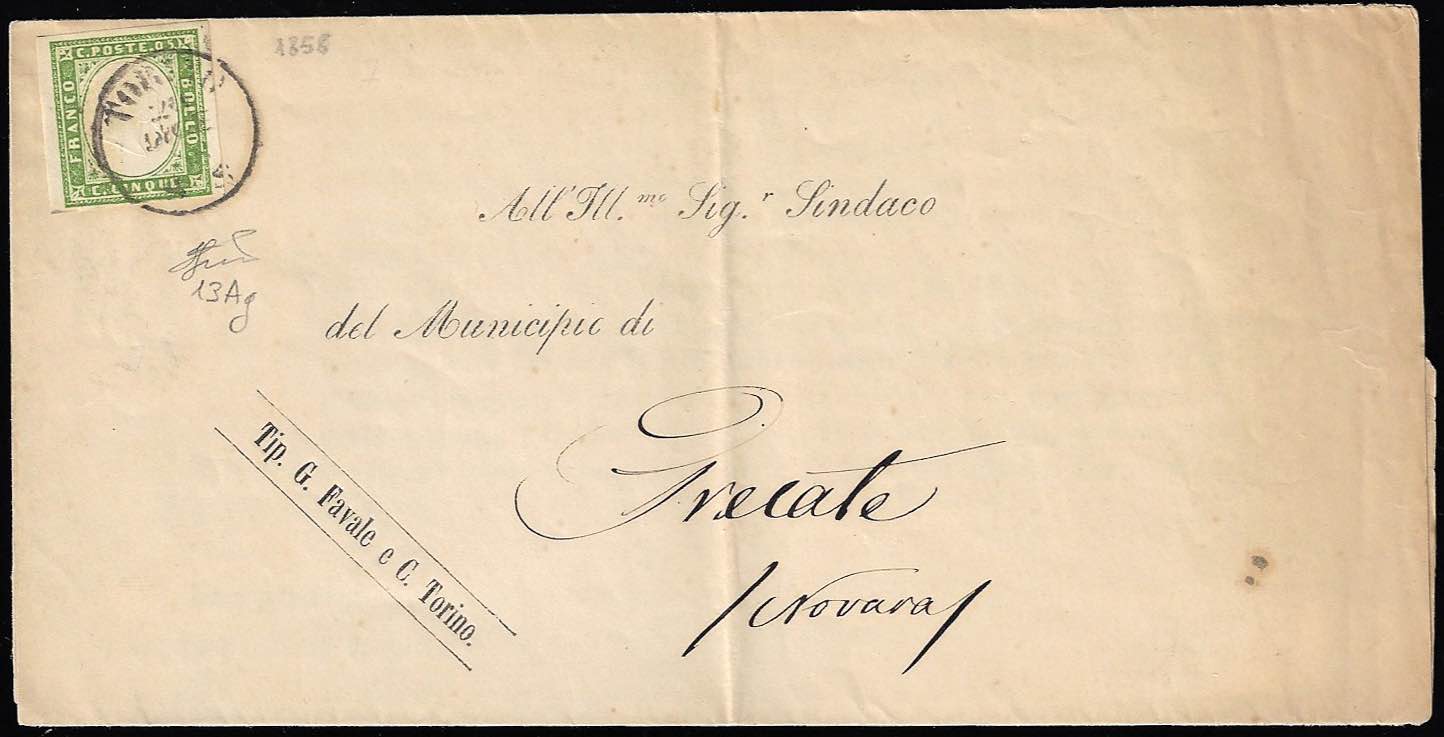 C. POSTE. 05
FRANCO
BOLLO
C. CINQUE
1858
All' Ill.mo Sig.r Sindaco
13Ag
del Municipio di
Tip. G. Favale e C. Torino.
Trecate
/Novara/